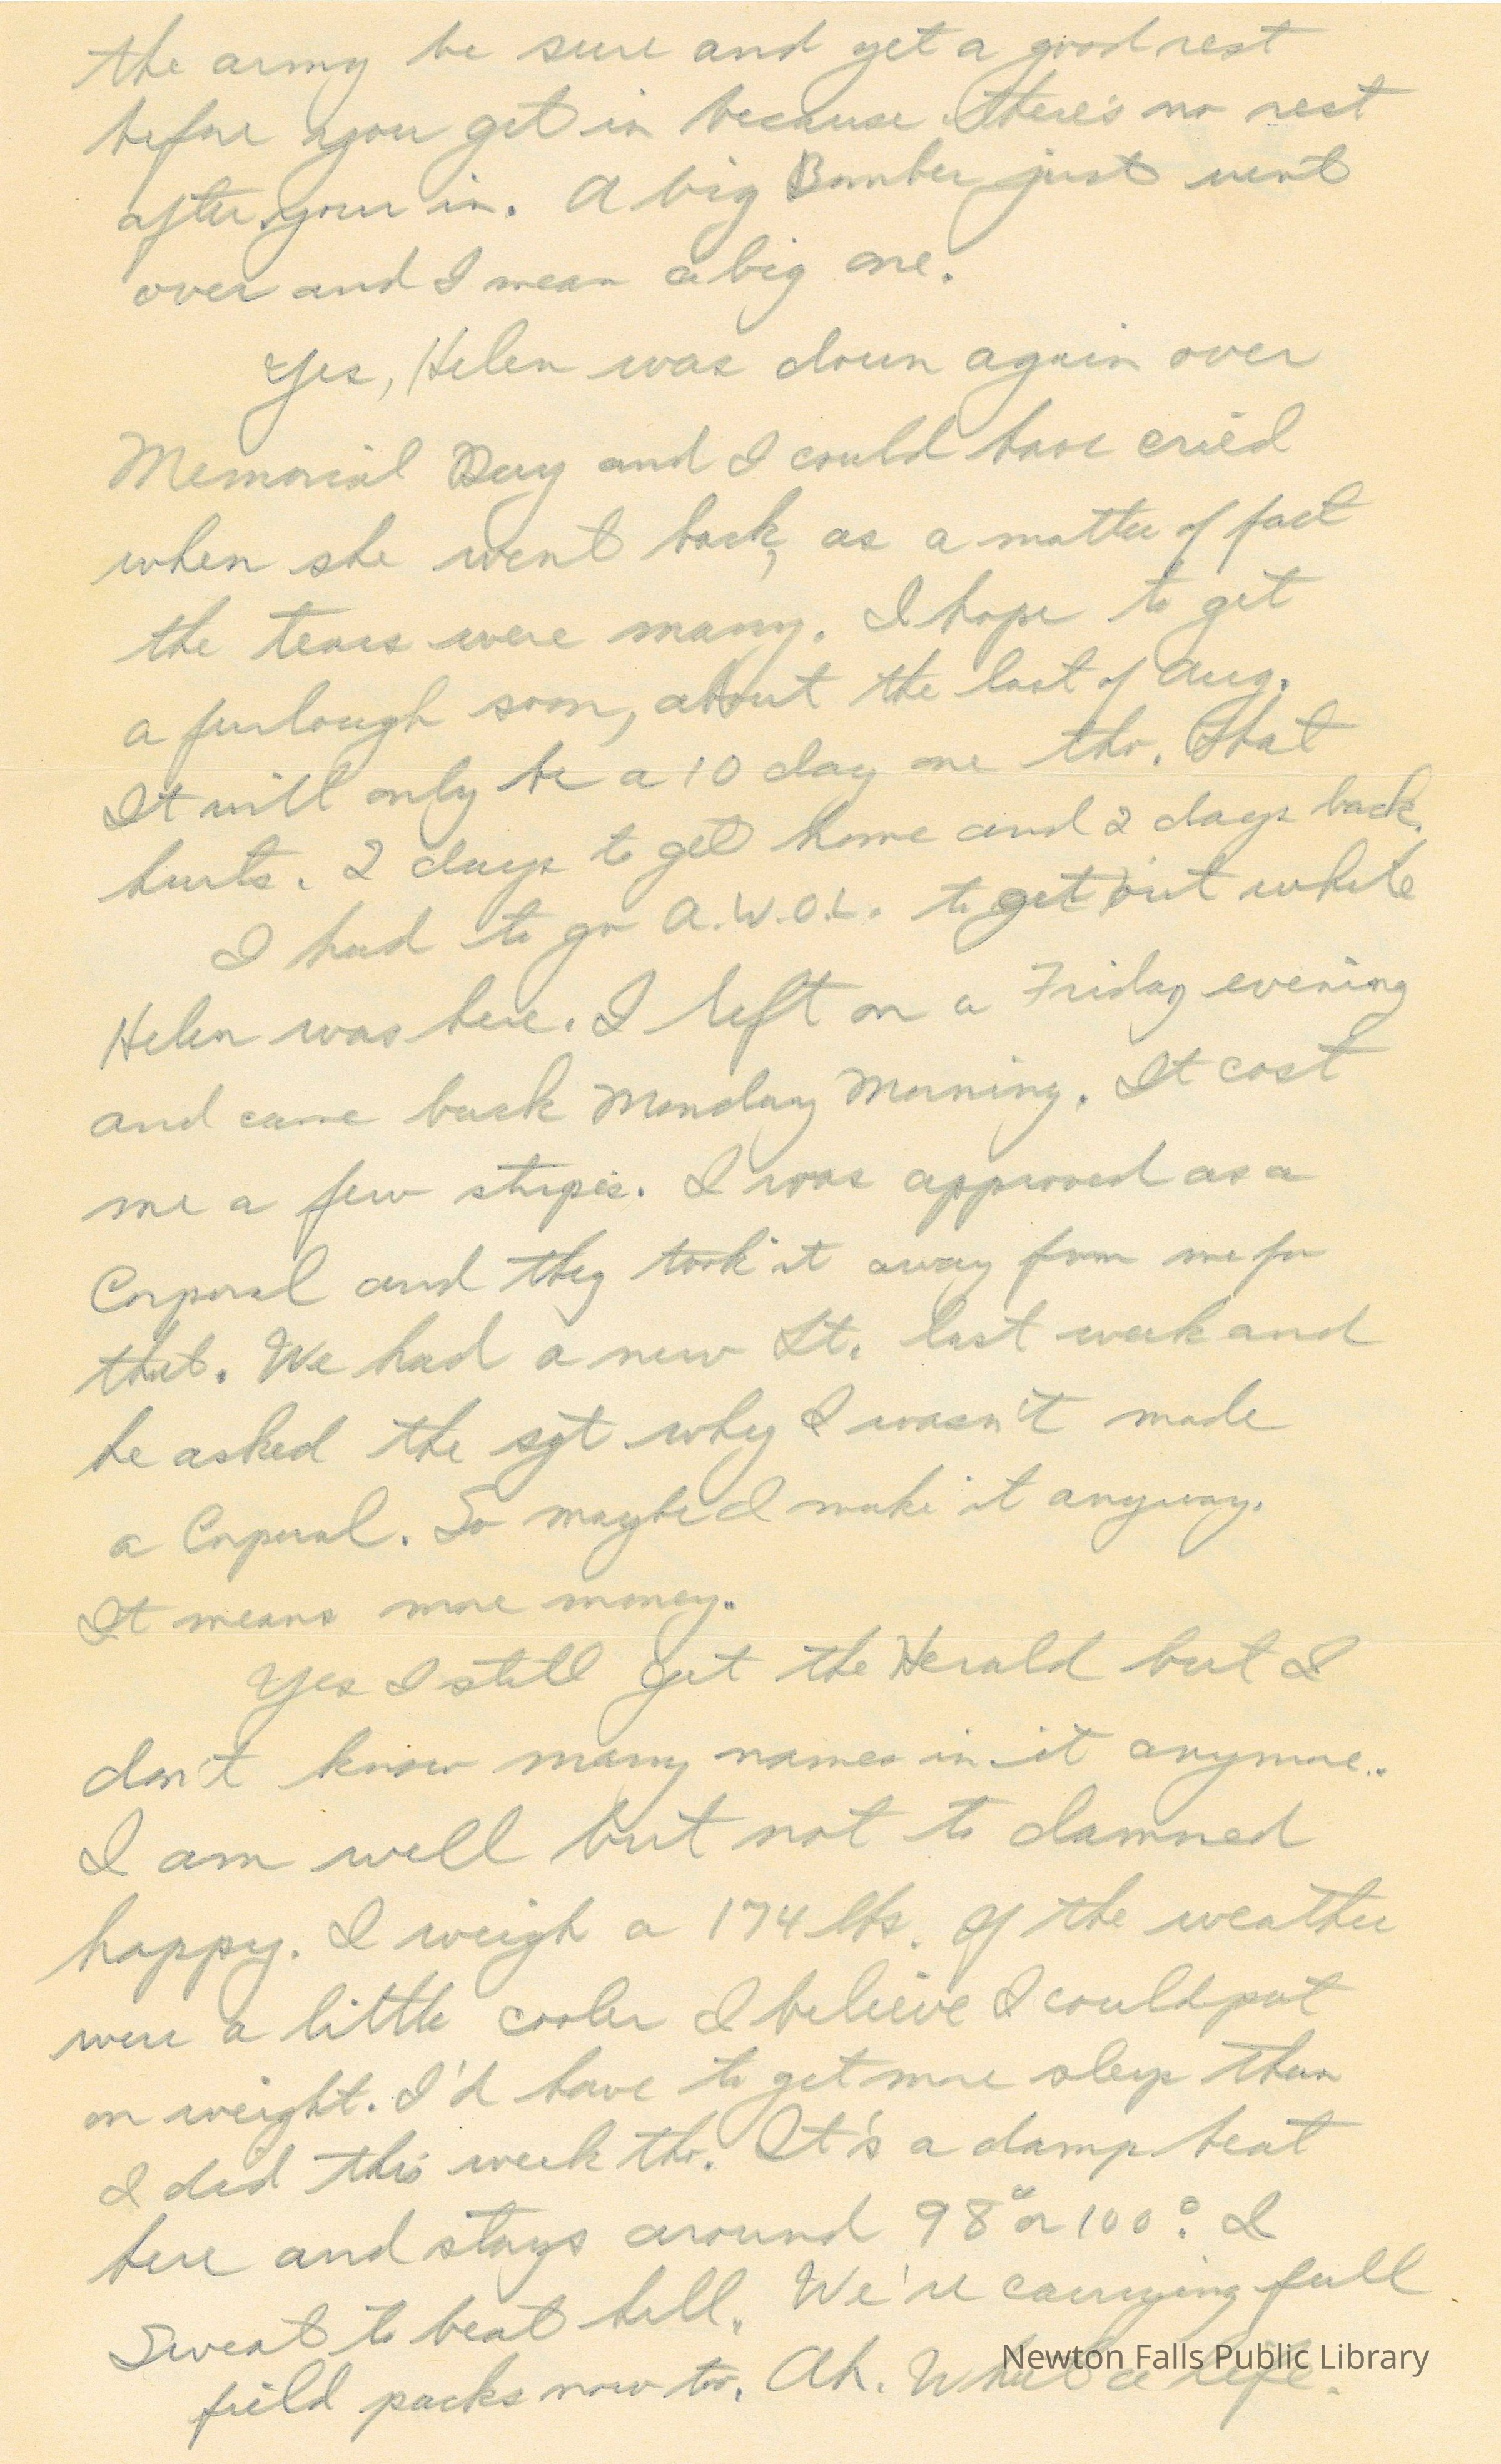 the army be sure and get a good rest
before you get in because there's no rest
after your in. A big Bomber just went
over and I mean a big one.
Yes, Helen was down again over
Memorial Day and I could have cried
when she went back, as a matter of fact
the tears were many. I hope to get
a furlough soon, about the last of Aug.
It will only be a 10 day one tho. That
hurts. 2 days to get home and 2 days back.
I had to go A.W.O.L. to get out while
Helen was here. I left on a Friday evening
and came back Monday Morning. It cost
me a few stripes. I was approved as a
Corporal and they took it away from me for
that. We had a new Lt. last week and
he asked the sgt why I wasn't made
a Corporal. So maybe I make it anyway.
It means more money.
Yes I still get the Herald but I
don't know many names in it anymore..
I am well but not to damned
happy. I weigh a 174 lbs. If the weather
were a little cooler I believe I could put
on weight. I'd have to get more sleep than
I did this week tho. It's a damp heat
here and stays around 98° or 100°. I
Sweat to beat hell. We're carrying full
field packs now to. Ah. What a life.
Newton Falls Public Library